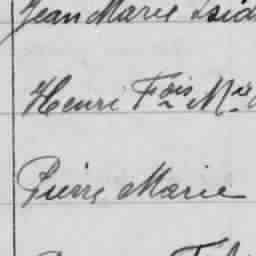 Jean Marie Isid
Henri Fois Mie
Pierre Marie